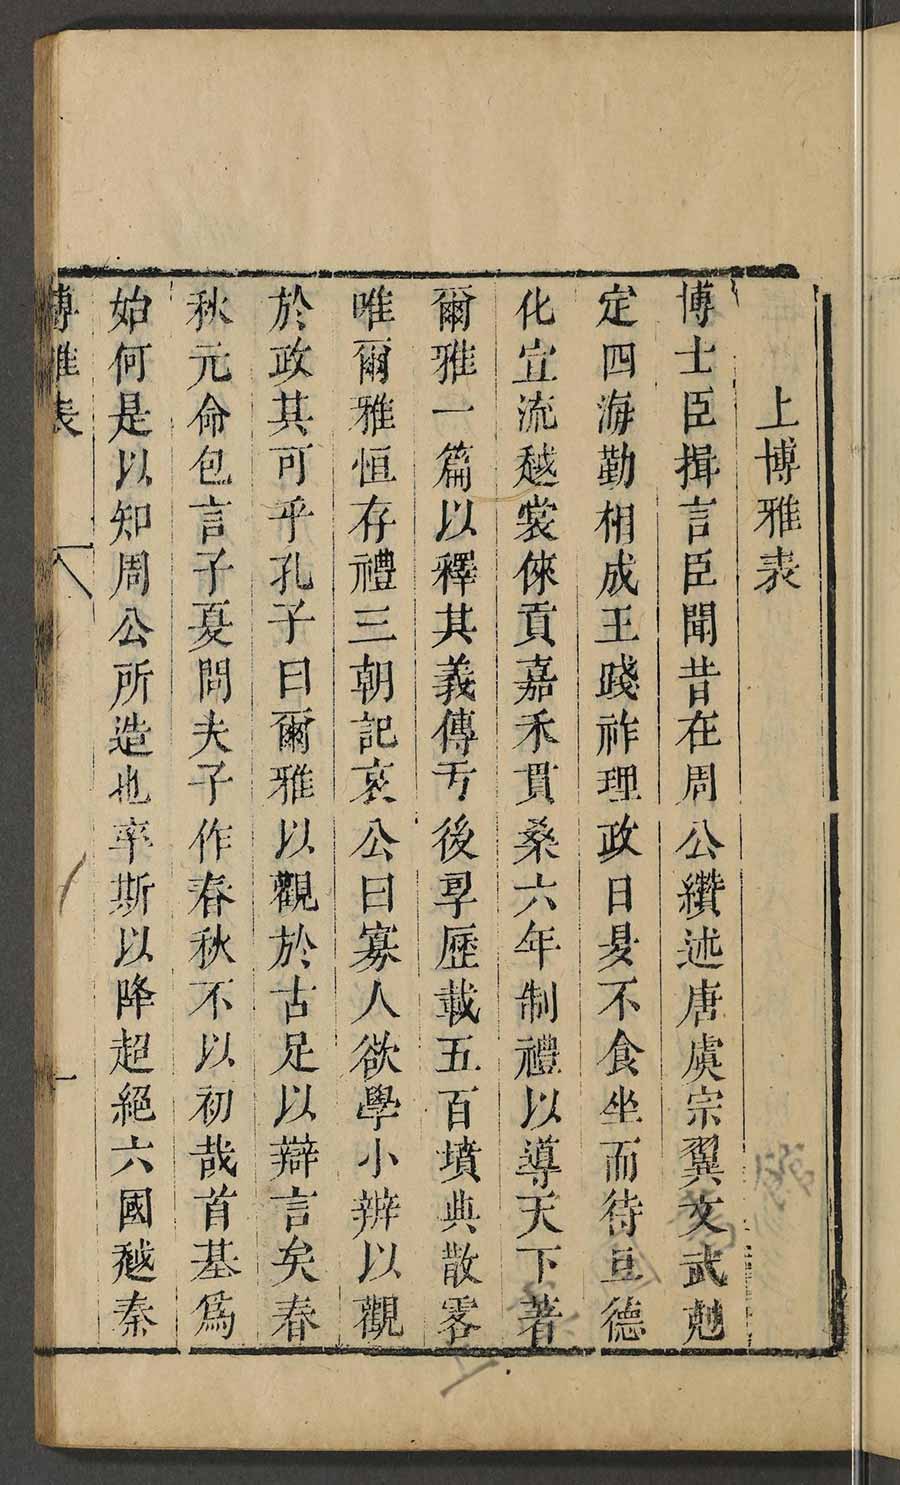 上博雅表
博士臣揖言臣聞昔在周公纘述唐虞宗翼文武剋
定四海勤相成王踐祚理政日昃不食坐而待亘德
化宣流越裳倈貢嘉禾貫桑六年制禮以導天下著
爾雅一篇以釋其義傳亏後𠃵歷載五百墳典散零
唯爾雅恒存禮三朝記哀公曰寡人欲學小辨以觀
於政其可乎孔子曰爾雅以觀於古足以辯言矣春
秋元命包言子夏問夫子作春秋不以初哉首基爲
始何是以知周公所造也率斯以降超絕六國越秦
博雅表
一